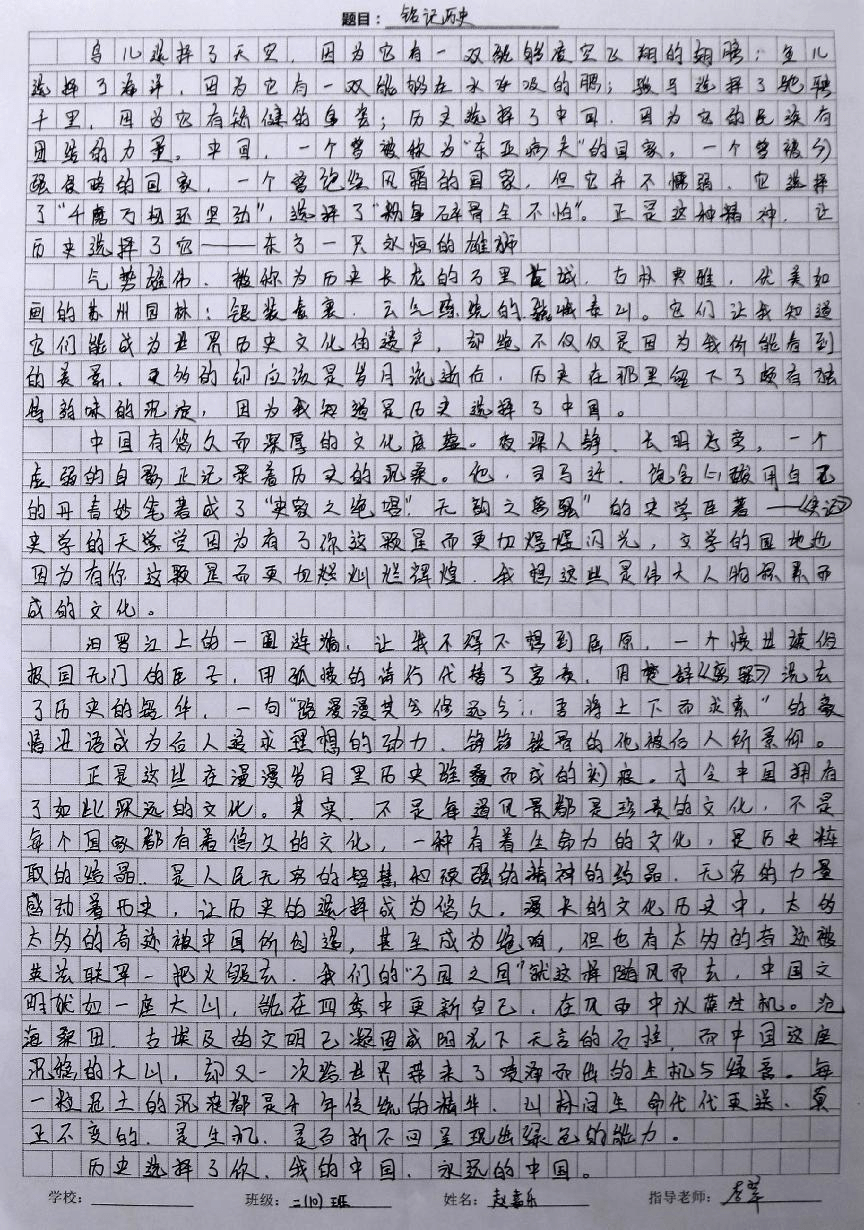 题目：铭记历史
鸟儿选择了天空，因为它有一双能够凌空飞翔的翅膀；鱼儿
选择了海洋，因为它有一双能够在水中游的腮；骏马选择了驰骋
千里，因为它有矫健的身姿；历史选择了中国，因为它的民族有
团结的力量。中国，一个曾被称为“东亚病夫”的国家，一个曾被列
强侵略的国家，一个曾饱经风霜的国家，但它并不懦弱，它选择
了“千磨万极还坚劲”，选择了“粉身碎骨全不怕”。正是这种精神，让
历史选择了它——东方一只永恒的雄狮
气势雄伟，被称为历史长龙的万里长城，古朴典雅，优美如
画的苏州园林；银装素裹，云气缭绕的泰山。它们让我知道
它们能成为世界历史文化的遗产，却绝不仅仅是因为我们能看到
的美景，更多的却应该是岁月流逝后，历史在那里留下了颇有独
特韵味的沉淀，因为我知道是历史选择了中国。
中国有悠久而深厚的文化底蕴。夜深人静，长明灯旁，一个
虚弱的身影正记录着历史的沉柔。他，司马迁，饱含心酸用自己
的丹青妙笔著成了“史家之绝唱，无韵之离骚”的史学巨著——《史记》
史学的天学堂因为有了你这颗星而更加熠熠闪光，文学的园地也
因为有你这颗星而更加灿烂辉煌。我想这些是伟大人物积累而
成的文化。
汨罗江上的一圈涟漪，让我不得不想到屈原，一个愤世嫉俗
报国无门的臣子，用孤愤的诗行代替了富贵，用楚辞《离骚》洗去
了历史的铅华，一句“路漫漫其兮修远兮，吾将上下而求索”的豪
情壮语成为后人追求理想的动力，铮铮铁骨的他被后人所景仰。
正是这些在漫漫岁月里历史堆叠而成的刻痕，才令中国拥有
了如此深远的文化。其实，不是每道风景都是珍贵的文化，不是
每个国家都有着悠久的文化，一种有着生命力的文化，是历史粹
取的结晶，是人民无穷的智慧和顽强的精神的结晶，无穷的力量
感动着历史，让历史的选择成为悠久，漫长的文化历史中，太多
太多的奇迹被中国所创造，甚至成为绝响，但也有太多的奇迹被
英法联军一把火毁去，我们的“万园之园”就这样随风而去，中国文
明就如一座大山，能在四季中更新自己，在风雨中收藏生机。沧
海桑田，古埃及的文明已凝固成阳光下无言的石柱，而中国这座
沉稳的大山，却又一次跨世界带来了喷薄而出的生机与绿意。每
一粒泥土的沉淀都是千年传统的精华，山林间生命代代更迭，真
正不变的，是生机，是百折不回呈现出绿色的能力。
历史选择了你，我的中国，永远的中国。
学校： 班级：二(10)班 姓名：赵嘉乐 指导老师：李翠